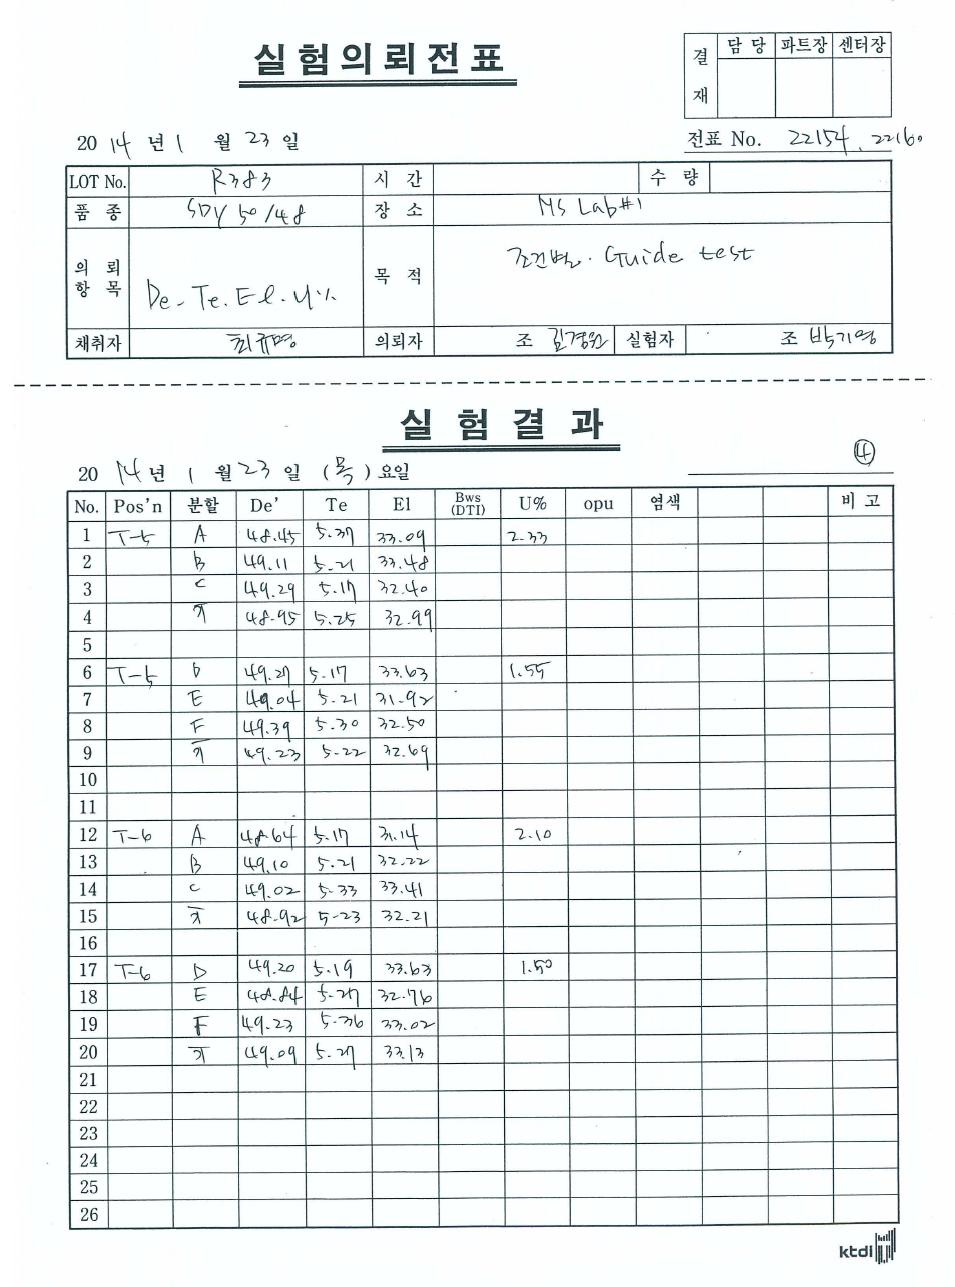 실험의뢰전표
결재 담당 파트장 센터장
2014년 1월 23일
전표 No. 22154, 22160
LOT No. R383 시간 수량
품종 SDY 50/48 장소 MS Lab#1
의뢰항목 De-Te.El.U% 목적 조건별. Guide test
채취자 최규명 의뢰자 조 김경원 실험자 조 박기영
실험결과
2014년 1월 23일 (목)요일 ④
No. Pos'n 분할 De' Te El Bws (DTI) U% opu 염색 비고
1 T-5 A 48.45 5.37 33.09 2.33
2 B 49.11 5.21 33.48
3 C 49.29 5.17 32.40
4 x̄ 48.95 5.25 32.99
5
6 T-5 D 49.27 5.17 33.63 1.55
7 E 49.04 5.21 31.92
8 F 49.39 5.30 32.50
9 x̄ 49.23 5.22 32.69
10
11
12 T-6 A 48.64 5.17 31.14 2.10
13 B 49.10 5.21 32.22
14 C 49.02 5.33 33.41
15 x̄ 48.92 5.23 32.21
16
17 T-6 D 49.20 5.19 33.63 1.50
18 E 48.84 5.27 32.76
19 F 49.23 5.36 33.02
20 x̄ 49.09 5.27 33.13
21
22
23
24
25
26
ktdi